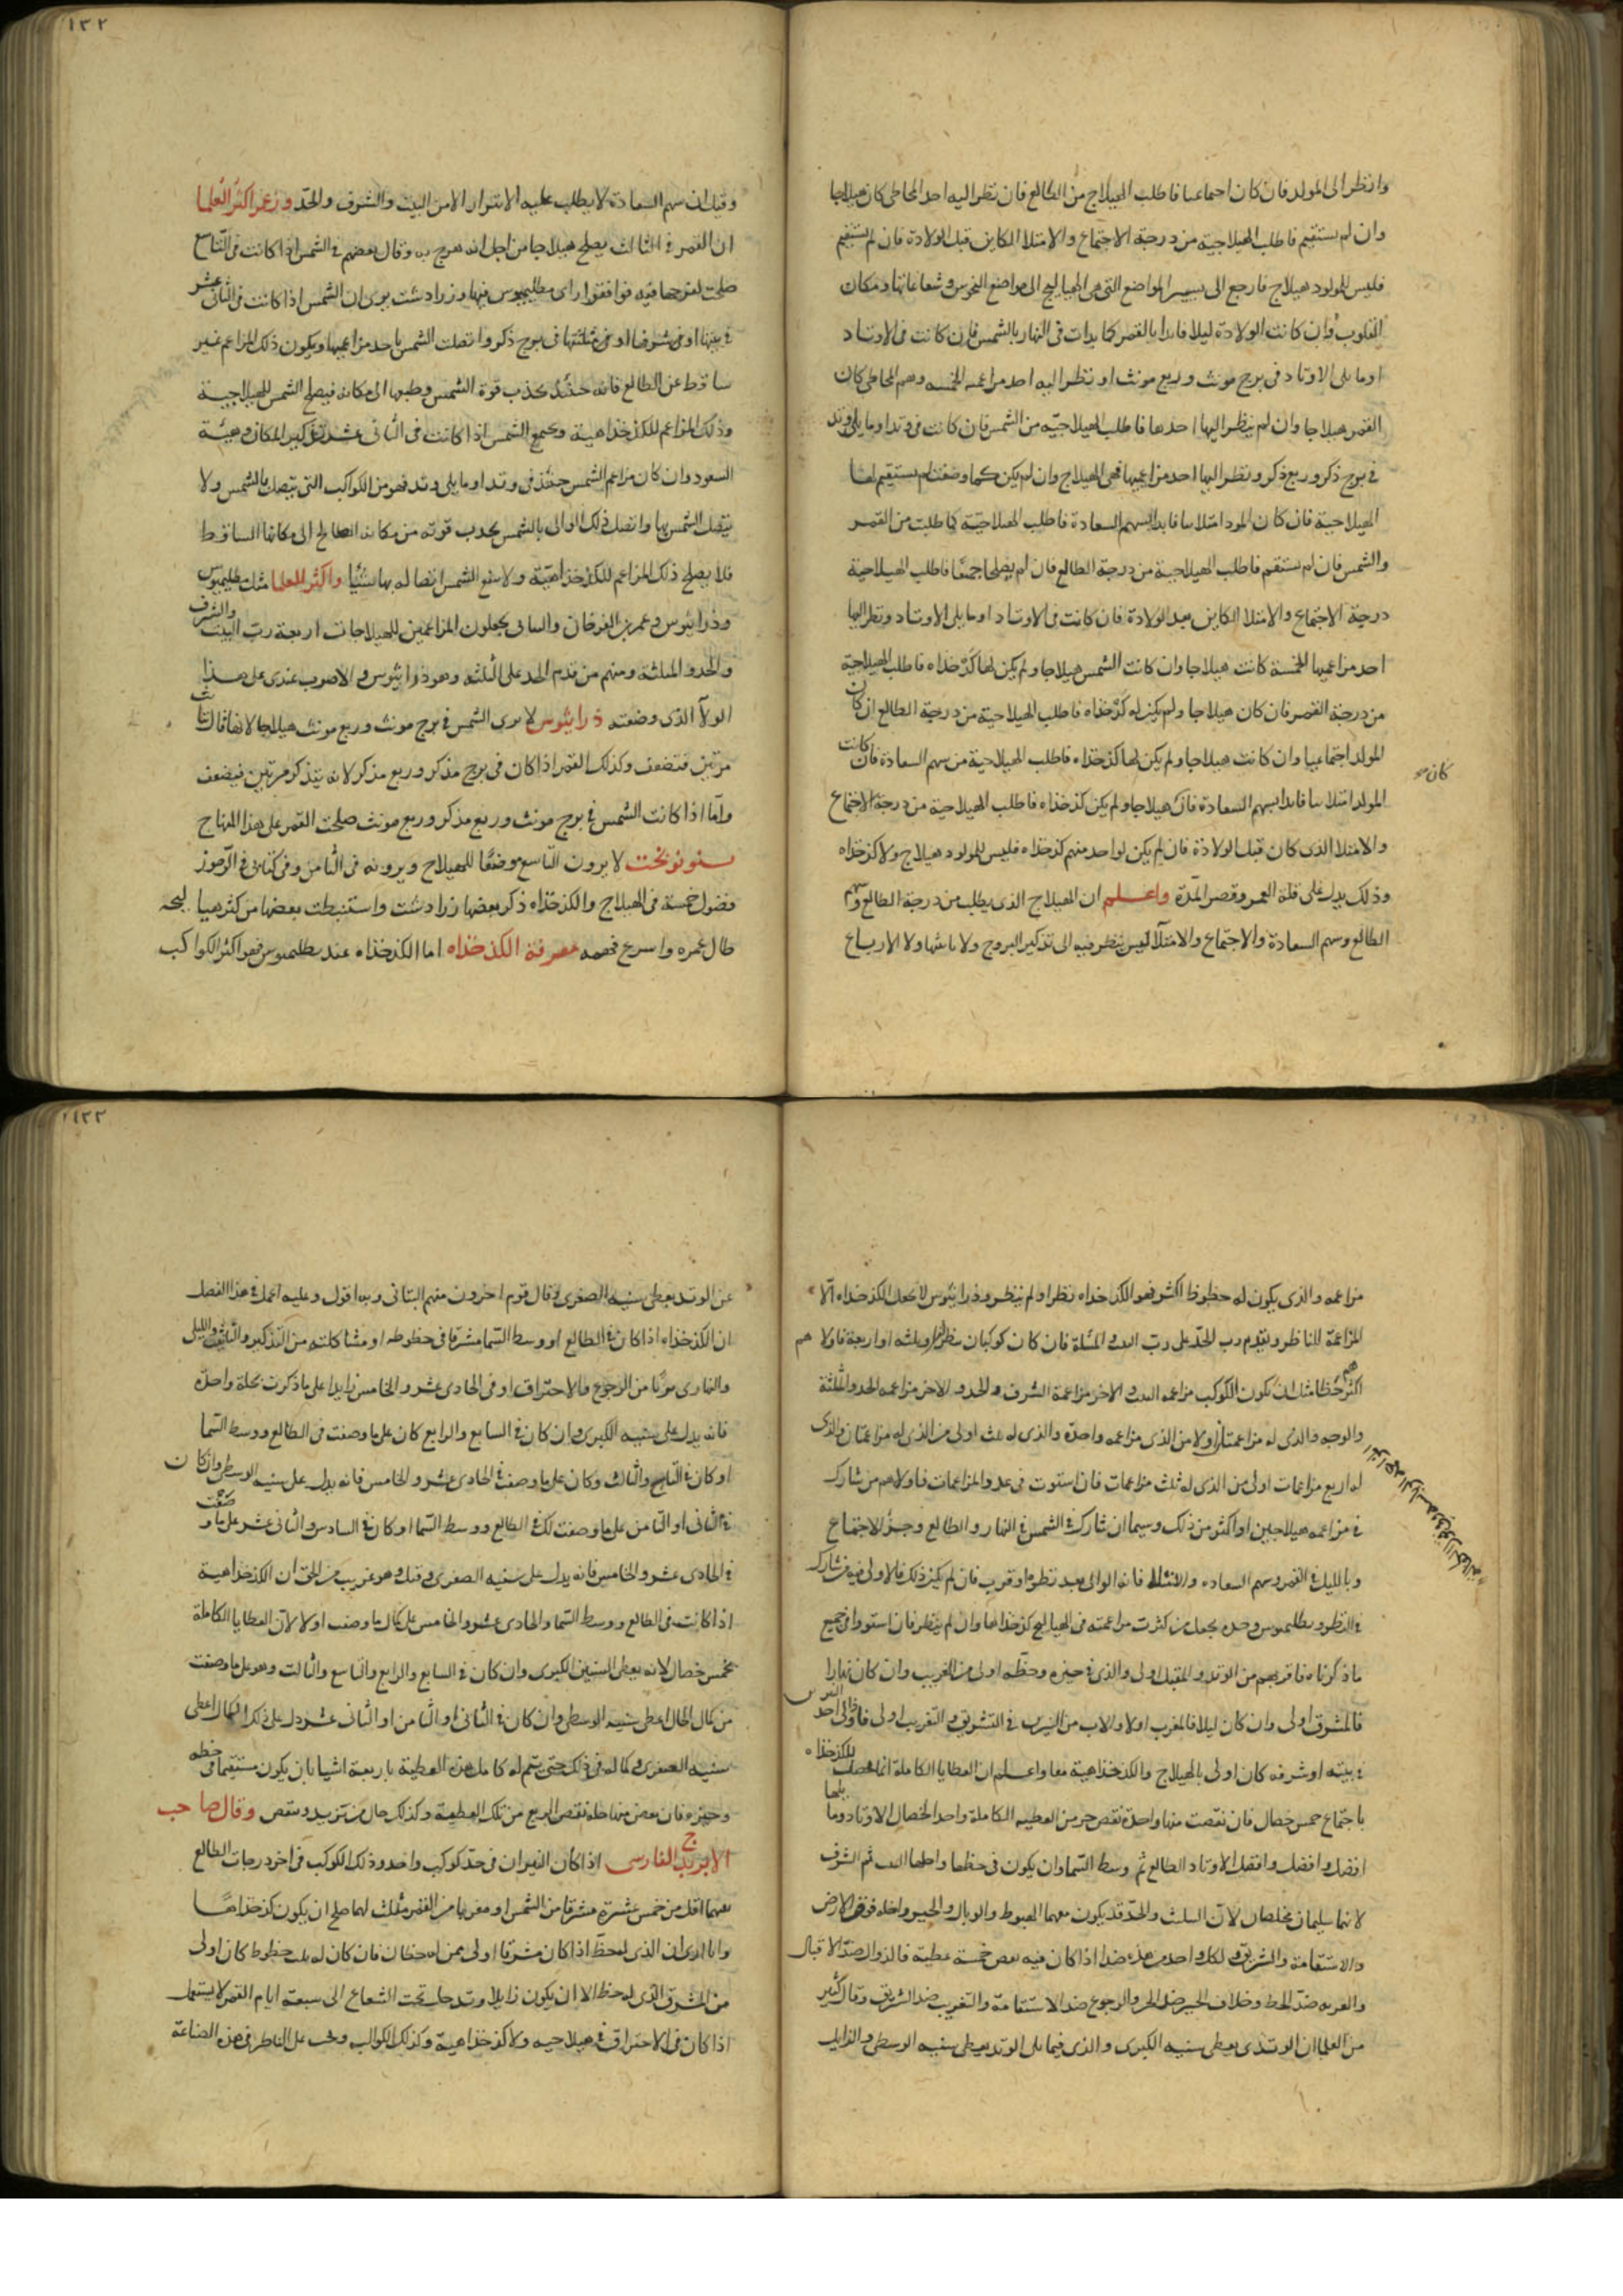 وانظر الى المولد فان كان اجتماعيا فاطلب الهيلاج من الطالع فان نظر اليه احد المحاطى كان هيلاجا
وان لم يستقيم فاطلب الهيلاجية من درجة الاجتماع والامتلا الكاين قبل الولادة فان لم يستقيم
فليس للمولود هيلاج فارجع الى تسيير المواضع التى هى الهياليج الى مواضع النحوس وشعاعاتها ومكان
القلوب وان كانت الولادة ليلا فابدا بالقمر كما بدات فى النهار بالشمس فان كانت فى الاوتاد
اوما يلى الاوتاد فى برج مونث وربع مونث او نظر اليه احد مزاعميه الخمسه وهم المحاطى كان
القمر هيلاجا وان لم ينظر اليها احدها فاطلب الهيلاجيّه من الشمس فان كانت فى وتد اوما يلى وتد
فى برج ذكر وربع ذكر ونظر اليها احد مزاعميها فهى الهيلاج وان لم يكن كما وصفت لم يستقيم لها
الهيلاجية فان كان المولد امتلاييا فابدا بسهم السعادة فاطلب الهيلاجيّة كما طلبت من القمر
والشمس فان لم يستقم فاطلب الهيلاجية من درجة الطالع فان لم يصلحا جميعًا فاطلب الهيلاجية
درجة الاجتماع والامتلا الكاين بعد الولادة فان كانت فى الاوتاد اوما يلى الاوتاد ونظر اليها
احد مزاعميها الخمسة كانت هيلاجا وان كانت الشمس هيلاجا ولم يكن لها كذخذاه فاطلب الهيلاجية
من درجة القمر فان كان هيلاجا ولم يكن له كذخذاه فاطلب الهيلاجية من درجة الطالع ان كان
المولد اجتماعيا وان كانت هيلاجا ولم يكن لها كذخذاه فاطلب الهيلاجية من سهم السعادة فان كانت
كان
المولد امتلاييا فابدا بسهم السعادة فان هيلاجا ولم يكن كذخذاه فاطلب الهيلاجية من درجة الاجتماع
والامتلا الذى كان قبل الولادة فان لم يكن لواحد منهم كذخذاه فليس للمولود هيلاج ولا كذخذاه
وذلك يدل على قلة العمر وقصر المدّة واعلم ان الهيلاج الذى يطلب من درجة الطالع وسهم
الطالع وسهم السعادة والاجتماع والامتلآ ليس ينظر فيه الى تذكير البروج ولا تانيثها ولا الارباع
١٣٢
وقيل ان سهم السعادة لا يطلب عليه الابتزاز الا من البيت والشرف والحدّ وزعم اكثر العلما
ان القمر فى الثالث يصلح هيلاجا من اجل انه فرح به وقال بعضهم فى الشمس اذا كانت فى التاسع
صلحت لفرحها فيه فوافقوا راى بطليموس فيها وزرادشت يرى ان الشمس اذا كانت فى الثانى عشر
فى بيتها او فى شرفها او فى مثلثتها فى برج ذكر واتصلت الشمس باحد مزاعميها ويكون ذلك المزاعم غير
ساقط عن الطالع فانه حينئذ يجذب قوة الشمس وطبعها الى مكانه فيصلح الشمس للهيلاجية
وذلك المزاعم للكذخذاهية ويجتمع الشمس اذا كانت فى الثانى عشر تذكير المكان وهيئة
السعود وان كان مزاعم الشمس حينئذ فى وتد اوما يلى وتد فهو من الكواكب التى يتصل بالشمس ولا
يتصل الشمس بها واتصل ذلك الوالى بالشمس يجذب قوته من مكانه الصالح الى مكانها الساقط
فلا يصلح ذلك المزاعم للكذخذاهيّة ولا ينفع الشمس اتصاله بها شيئا واكثر العلما مثل بطليموس
وذرانيوس وعمر بن الفرخان والساى يجعلون المزاعمين للهيلاجات اربعة رب البيت والشرف
والحد والمثلثة ومنهم من قدم الحد على المثلثه وهو ذوراثيوس والاصوب عندى على هذا
الولآ الذى وضعته ذرانيوس لا يرى الشمس فى برج مونث وربع مونث هيلاجا لانها قال تانث
مرتين فتضعف وكذلك القمر اذا كان فى برج مذكر وربع مذكر لانه يتذكر مرتين فيضعف
وامّا اذا كانت الشمس فى برج مونث وربع مذكر وربع مونث صلحت القمر على هذا المنهاج
بنو نوبخت لا يرون التاسع موضعًا للهيلاج ويرونه فى الثامن وفى كتابى فى الرموز
فصول خمسة فى الهيلاج والكذخذاه ذكر بعضها زرادشت واستنبطت بعضها من كثر هيا
طال عمره واسرع فهمه معرفة الكذخذاه اما الكذخذاه عند بطليموس فهو اكثر الكواكب
مزاعمه والذى يكون له حظوظ اكثر فهو الكذخداه نظر او لم ينظر وذرانيوس لا يجعل الكذخداه الا
المزاعمة للناظر ويقدم رب الحدّ على رب البيت والمثلثة فان كان كوكبان ينظران او ثلثه او اربعة فاولاهم
اكثرهم حظا مثل ان يكون الكوكب مزاعمه البيت والاخر مزاعمة الشرف والحد والاخر مزاعمه الحد والمثلثة
والوجه والذى له مزاعمتان اولا من الذى مزاعمه واحدة والذى له ثلث اولى من الذى له مزاعمتان والذى
له اربع مزاعمات اولى من الذى له ثلث مزاعمات فان استوت فى عدد المزاعمات فاولاهم من شارك
فى مزاعمه هيلاجين او اكثر من ذلك وسيما ان شارك فى الشمس فى النهار والطالع وجزؤ الاجتماع
وبالليل فى القمر وسهم السعاده والامتلا فانه الوالى بعد نظره او قرب فان لم يكن ذلك فالاولى فيه من شارك
فى النظر وبطليموس وحده يجعل من كثرت مزاعمته فى الهياليج كذخداها وان لم ينظر فان استووا فى جميع
ما ذكرناه فاقربهم من الوتد والمقبل اولى والذى فى حيزه وحظه اولى من الغريب وان كان نهارا
فالمشرق اولى وان كان ليلا فالمغرب اولا من النيرين فى التشريق والتغريب اولى فاولى احد
فى بيته او شرفه كان اولى بالهيلاج والكذخذاهية معا واعلم ان العطايا الكاملة انما تحصل للكذخذاه
باجتماع خمس خصال فان نقصت منها واحدة نقص جز من العطيه الكاملة واحد الخصال الاوتاد وما يليها
افضل وافضل الاوتاد الطالع ثم وسط السما وان يكون فى حظها واجلها البيت ثم الشرف
لانهما سليمان مخلصان لان المثلث والحدّ قد يكون معهما الهبوط والوبال والحيز واخله فوق الارض
والاستقامة والتشريق ولكل واحد من هذه ضدا اذا كان فيه نقص خمسة عطية فالزوال ضدّ الاقبال
والغربه ضدّ الحظ وخلاف الحيز ضد الحيز والرجوع ضد الاستقامة والتغريب ضد التشريق وقال كثير
من العلما ان الوتدى يعطى سنيه الكبرى والذى فيما يلى الوتد يعطى سنيه الوسطى والزايل
١٣٣
عن الوتد يعطى سنيه الصغرى وقال قوم اخرون منهم البتانى وبه اقول وعليه اعمل فى هذا الفصل
ان الكذخذاه اذا كان فى الطالع او وسط السما مشرقا فى حظوظه او مشاكلته من التذكير والتانيث والليلى
والنهارى بريًا من الرجوع والاحتراق او فى الحادى عشر والخامس زايدا على ما ذكرت بخلة واحدة
فانه يدل على سنيه الكبرى وان كان فى السابع والرابع كان على ما وصفت فى الطالع ووسط السما
او كان فى التاسع والثالث وكان على ما وصفت فى الحادى عشر والخامس فانه يدل على سنيه الوسطى وان كان
فى الثانى او الثامن على ما وصفت لك فى الطالع ووسط السما او كان فى السادس والثانى عشر على ما وصفت
فى الحادى عشر والخامس فانه يدل على سنيه الصغرى وقيل وهو غريب من الحق ان الكذخذاهية
اذا كانت فى الطالع ووسط السما والحادى عشر والخامس على كمال ما وصفت اولا لان العطايا الكاملة
بخمس خصال لانه يعطى السنين الكبرى وان كان فى السابع والرابع والتاسع والثالث وهو على ما وصفت
من كمال الحال اعطى سنيه الوسطى وان كان فى الثانى او الثامن او الثانى عشر دل على ذلك الكمال اعطى
سنيه الصغرى وكماله فى ذلك حتى يتم له كامل هذه العطية باربعة اشيا بان يكون مستقيما فى حظه
وحيزه فان نقص منها خله نقص الربع من تلك العطية وكذلك حال من تزيد وينقص وقال صاحب
الابريدج الفارسى اذا كان النيران فى حدّ كوكب واحد وذلك الكوكب فى اخر درجات الطالع
بعدهما اقل من خمس عشرة مشرقا من الشمس او مغربا من القمر مثلث لهما صلح ان يكون كذخذاهًا
وانا ارى ان الذى له حظّ اذا كان مشرقا اولى ممن له حظان فان كان له ثلث حظوظ كان اولى
من المشرق الذى له حظ الا ان يكون زايلا وتد حل تحت الشعاع الى سبعة ايام القمر لا يستعمل
اذا كان فى الاحتراق فى هيلاجيه ولا كذخذاهية وكذلك الكواكب ويجب على الناظر فى هذه الصناعة